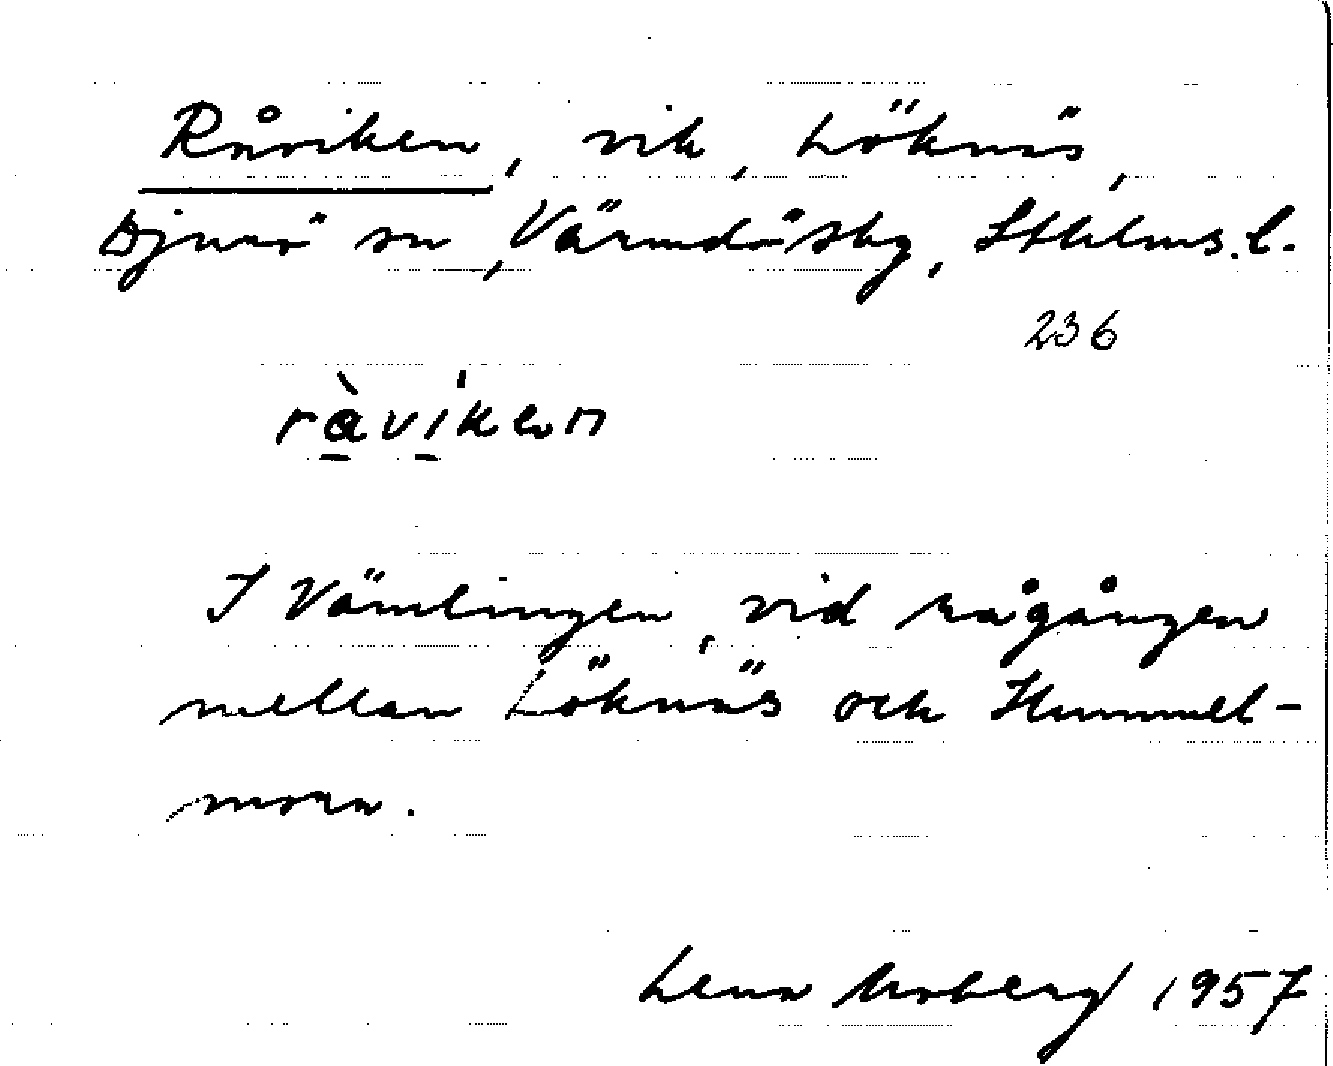 Råviken, vik, Löknäs,
Djurö sn, Värmdö skg, Sthlms. l.
236
ràvíken
I Vämlingen, vid rågången
mellan Löknäs och Hummel-
mora.
Lena Moberg 1957